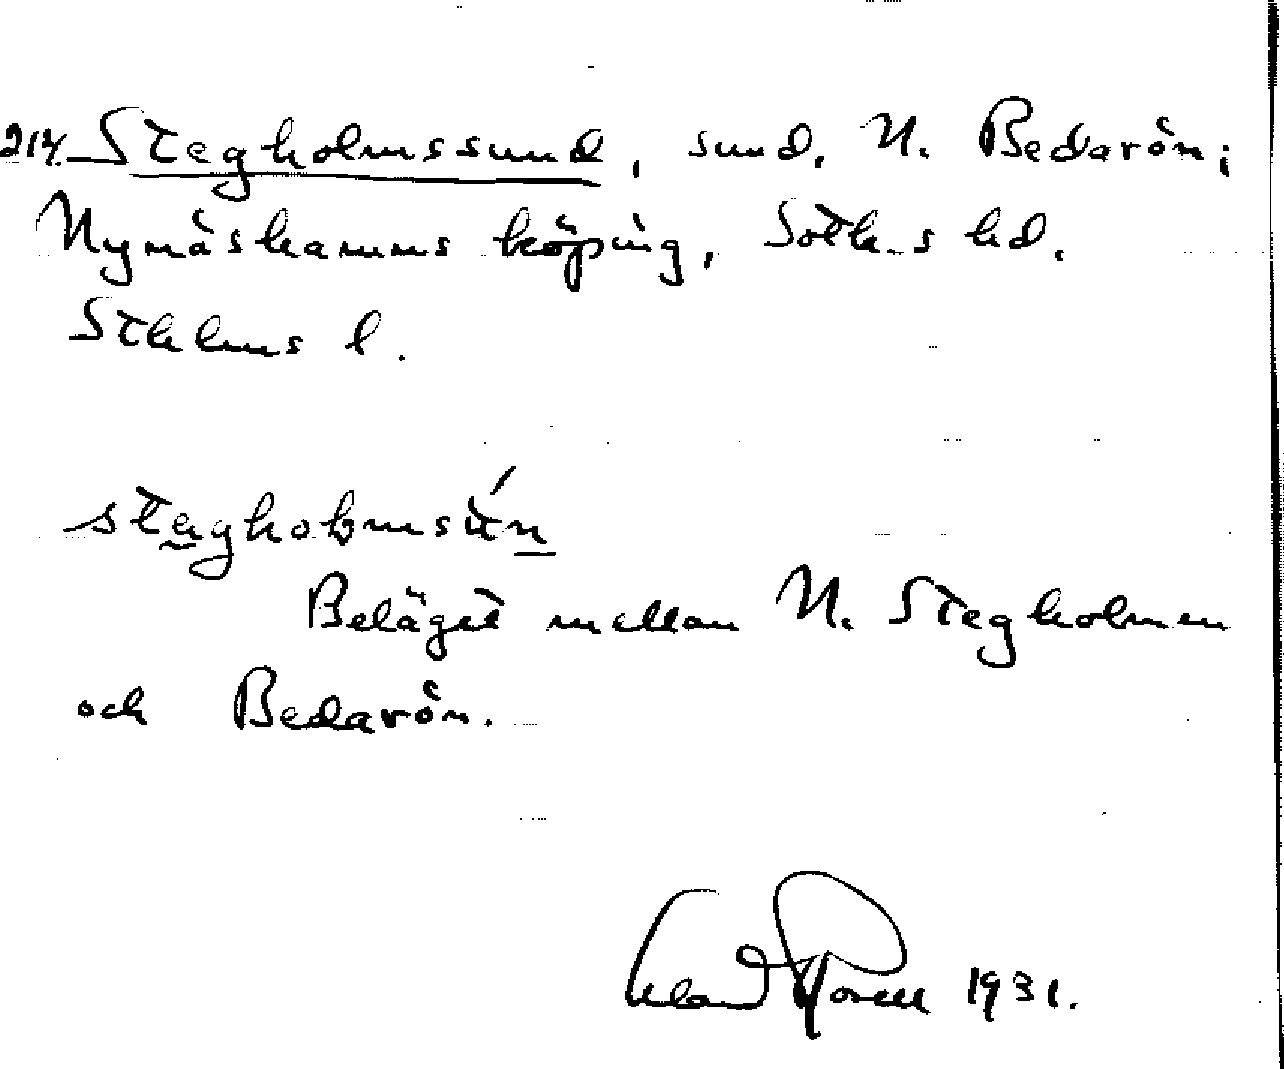 214. Stegholmssund, sund, N. Bedarön;
Nynäshamns köping, Sotholms hd.
Sthlms l.
stegholmsún
Beläget mellan N. Stegholmen
och Bedarön.
1931.